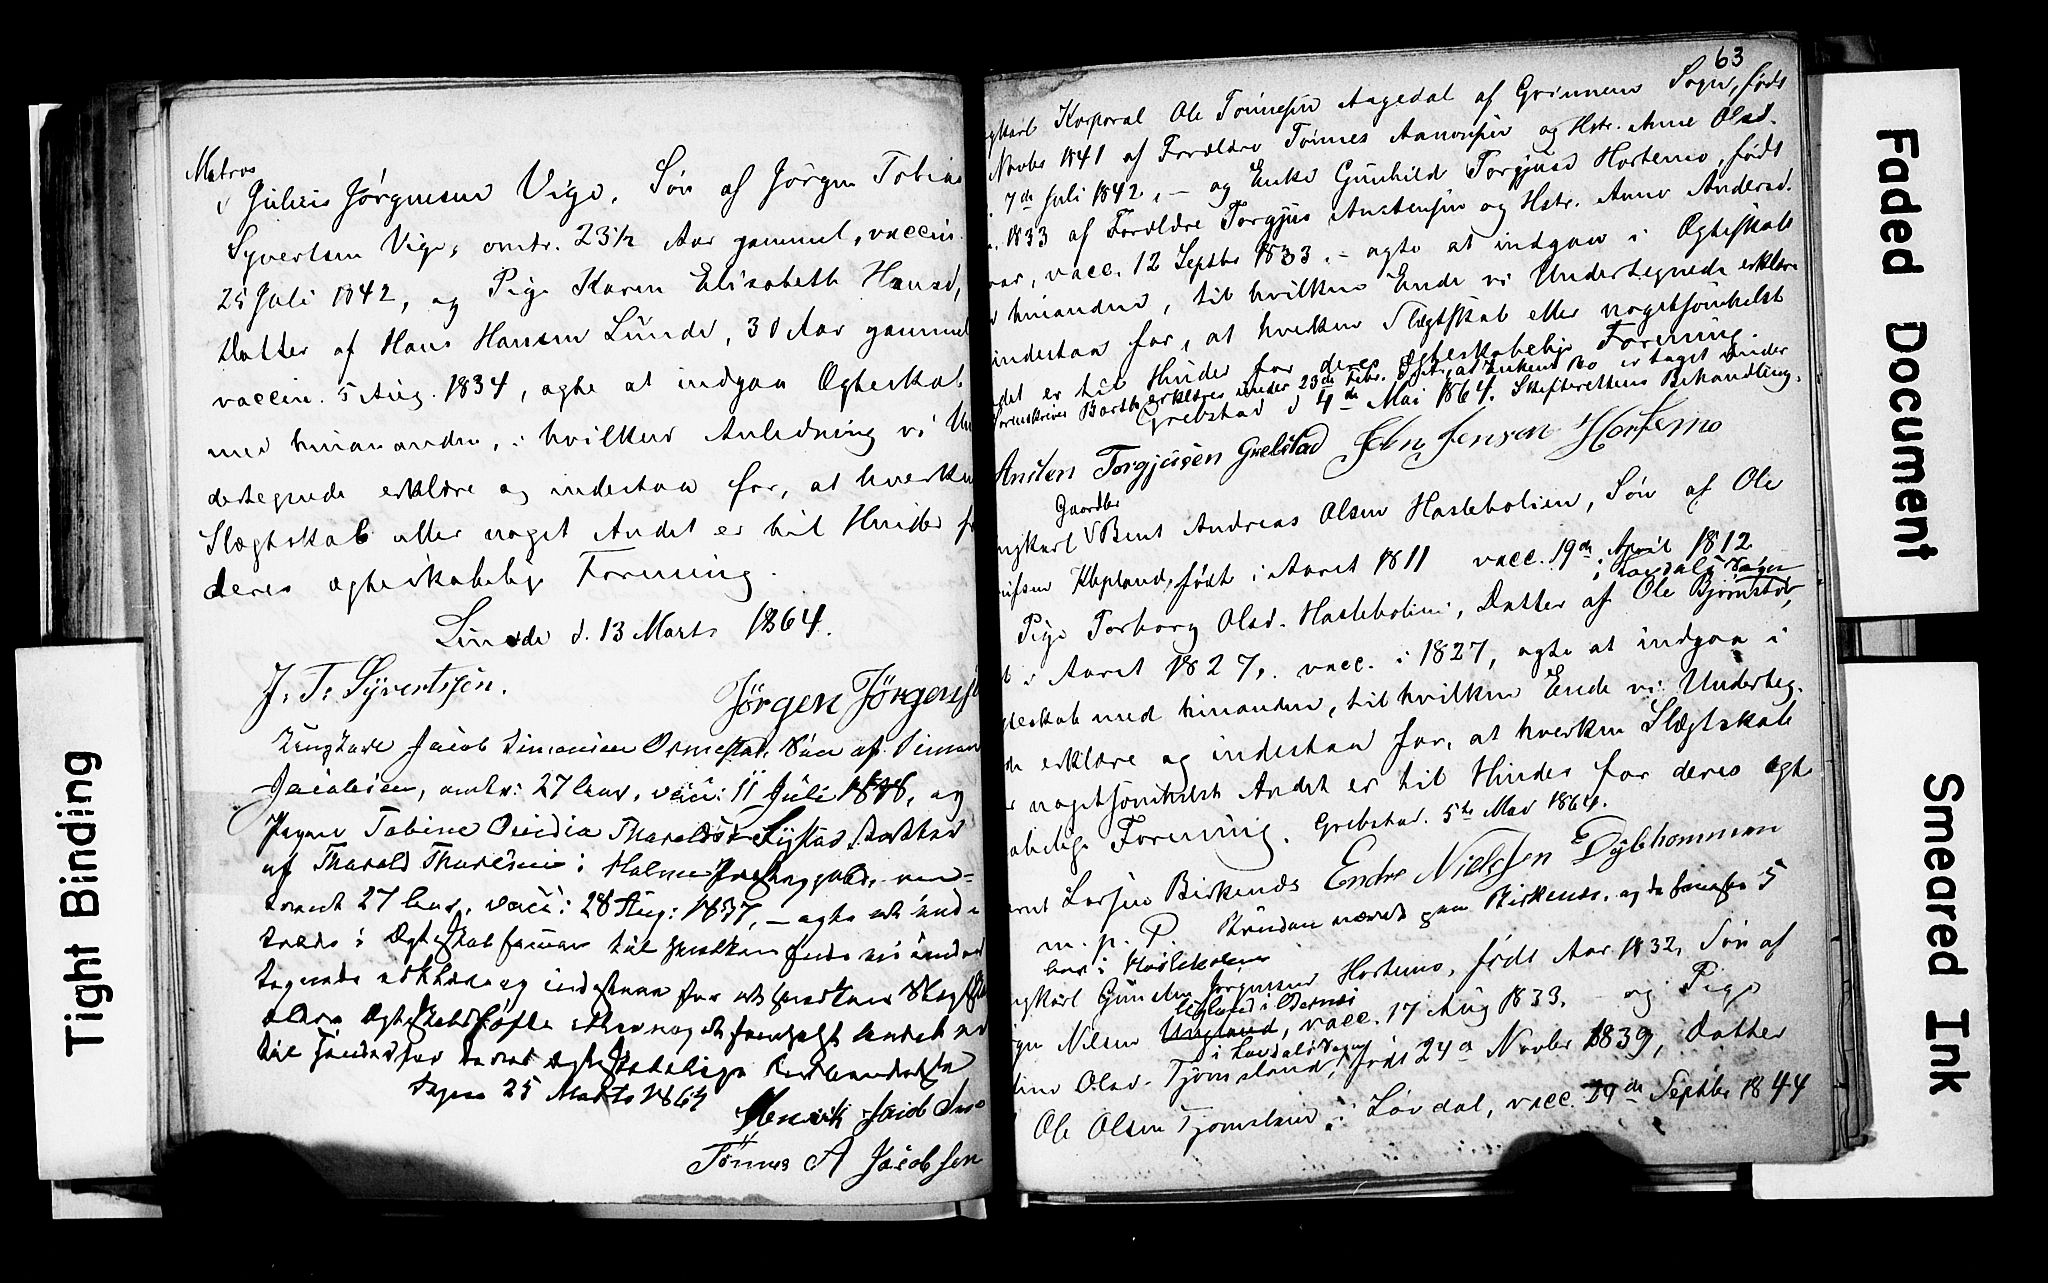 Matros
Julius Jørgensen Vige, Søn af Jørgen Tobias
Syvertsen Vige, omtr. 23½ Aar gammel, vaccin.
25 Juli 1842, og Pige Karen Elisabeth Hansd,
Datter af Hans Hansen Lunde, 30 Aar gammel
vaccin. 5 Aug. 1834, agte at indgaa Ægteskab
med hinananden, i hvilken Anledning vi Un
dertegnede erklære og indestaa for, at hverken
Slægtskab eller noget Andet er til Hinder for
deres ægteskabelige Forening.
Lunde d. 13 Marts 1864.
J. T. Syvertsen. Jørgen Jørgens
Ungkarl Jacob Simonsen Ormestad, Søn af Simon
Jacobsen, omtr: 27 Aar, vacc: 11 Juli 1838, og
Pigen Tobine Thoraldsd. Lystad Datter
af Tharald i Holme Præstegjæld, om-
trent 27 Aar, vacc: 28 Aug: 1837, – agte at ind
træde i Ægteskab sammen til hvilken Ende vi under
tegnede erklære og indestaa for at hverken Slægtskab
eller noget andet er
til Hinder for deres ægteskabelige
25 Marts 1864
Henrik Jacob
Tönnes A Jacobsen
63
gkarl Korporal Ole Tønnesen Aagedal af Grinnem Sogn, født
Novbr 1841 af Forældre Tønnes Aanonsen og Hstr. Anne Olsd.
7de Juli 1842, – og Enke Gunhild Torgjusd Hortemo, født
1833 af Forældre Torgjus Austensen og Hstr. Anne Andersd.
vacc. 12 Septbr 1833. – agte at indgaa i Ægteskab
hinanden, til hvilken Ende vi Undertegnede erklære
indestaa for, at hverken Slægtskab eller nogetsomhelst
det er til Hinder for deres ægteskabelige Forening.
Sorenskriver Barth erklæres under 23de Febr. at Enkens Bo er taget under
Grebstad d 4de Mai 1864. Skifterettens Behandling.
Austen Torgjusen Grebstad John Jensen Hortemo
Gaardbr
ngkarl Bent Andreas Olsen Haslebolien, Søn af Ole
Klepland, født i Aaret 1811 vacc. 19de April 1812
i Løvdals Sogn
Pige Torborg Olsd. Haslebolien, Datter af Ole Bjørnstøl,
i Aaret 1827, vacc. i 1827, agte at indgaa i
gteskab med hinanden, til hvilken Ende vi Underteg-
de erklære og indestaa for, at hverken Slægtskab
r nogetsomhelst Andet er til Hinder for deres ægte
abelige Forening. Grebstad. 5te Mai 1864.
Larsen Birkenes Endre Nielssen Dybhommen
m. p. P. Bruden været paa Birkenes, og de sidste 5
Aar i Haslebolien
ngkarl Gunsten Jørgensen Hortemo, født Aar 1832, Søn af
i Øvrenæs
Nilsen Ungland, vacc. 17 Aug 1833. – og Pige
i Løvdals Sogn
Olsd. Tjomsland, født 24de Novbr 1839, Datter
Ole Olsen Tjomsland i Løvdal, vacc. 29de Septbr 1844
Tight Binding
Faded Document
Smeared Ink